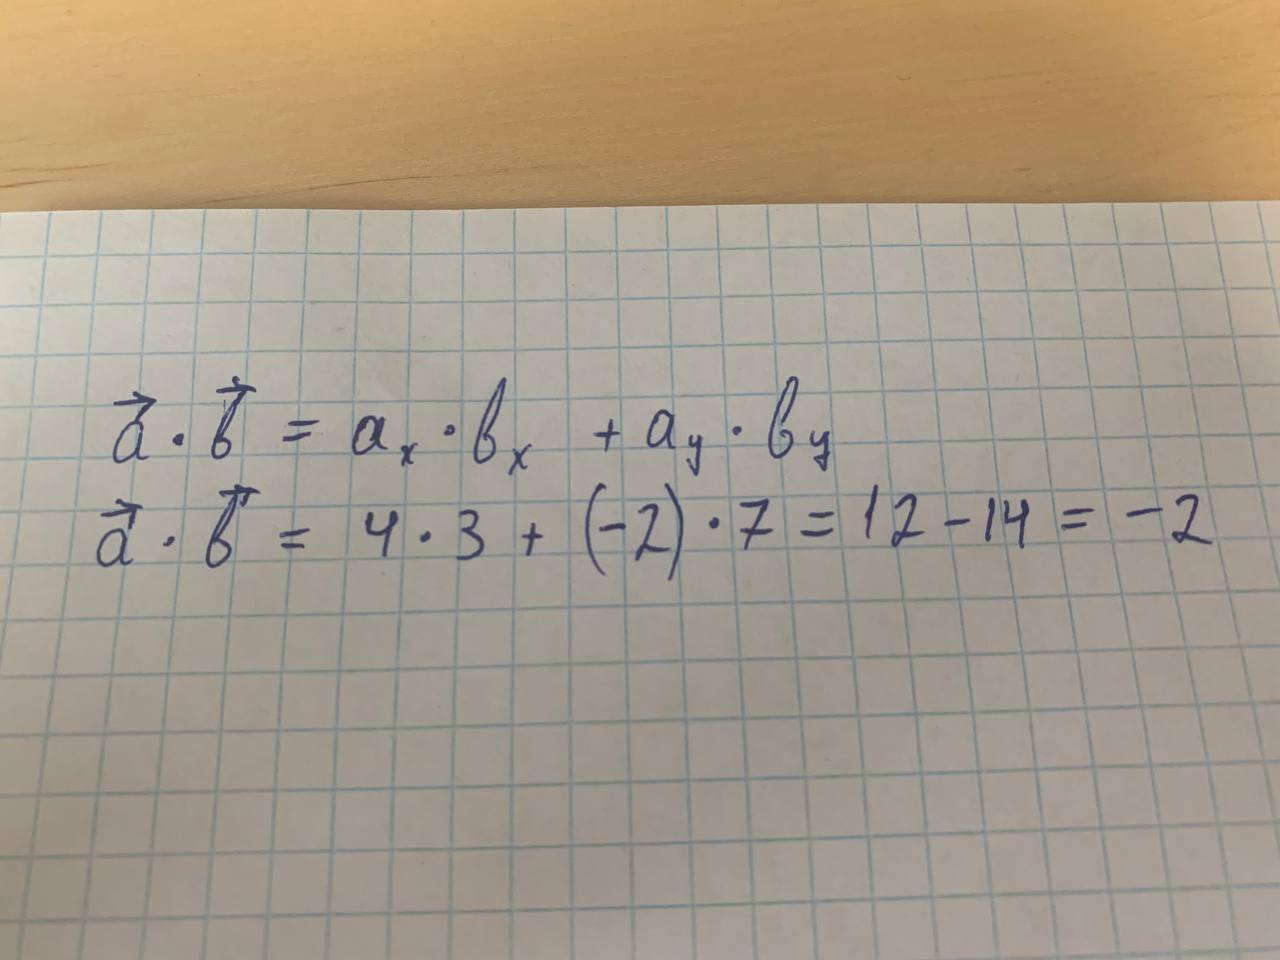 a⃗ · b⃗ = aₓ · bₓ + a_y · b_y
a⃗ · b⃗ = 4 · 3 + (-2) · 7 = 12 - 14 = -2